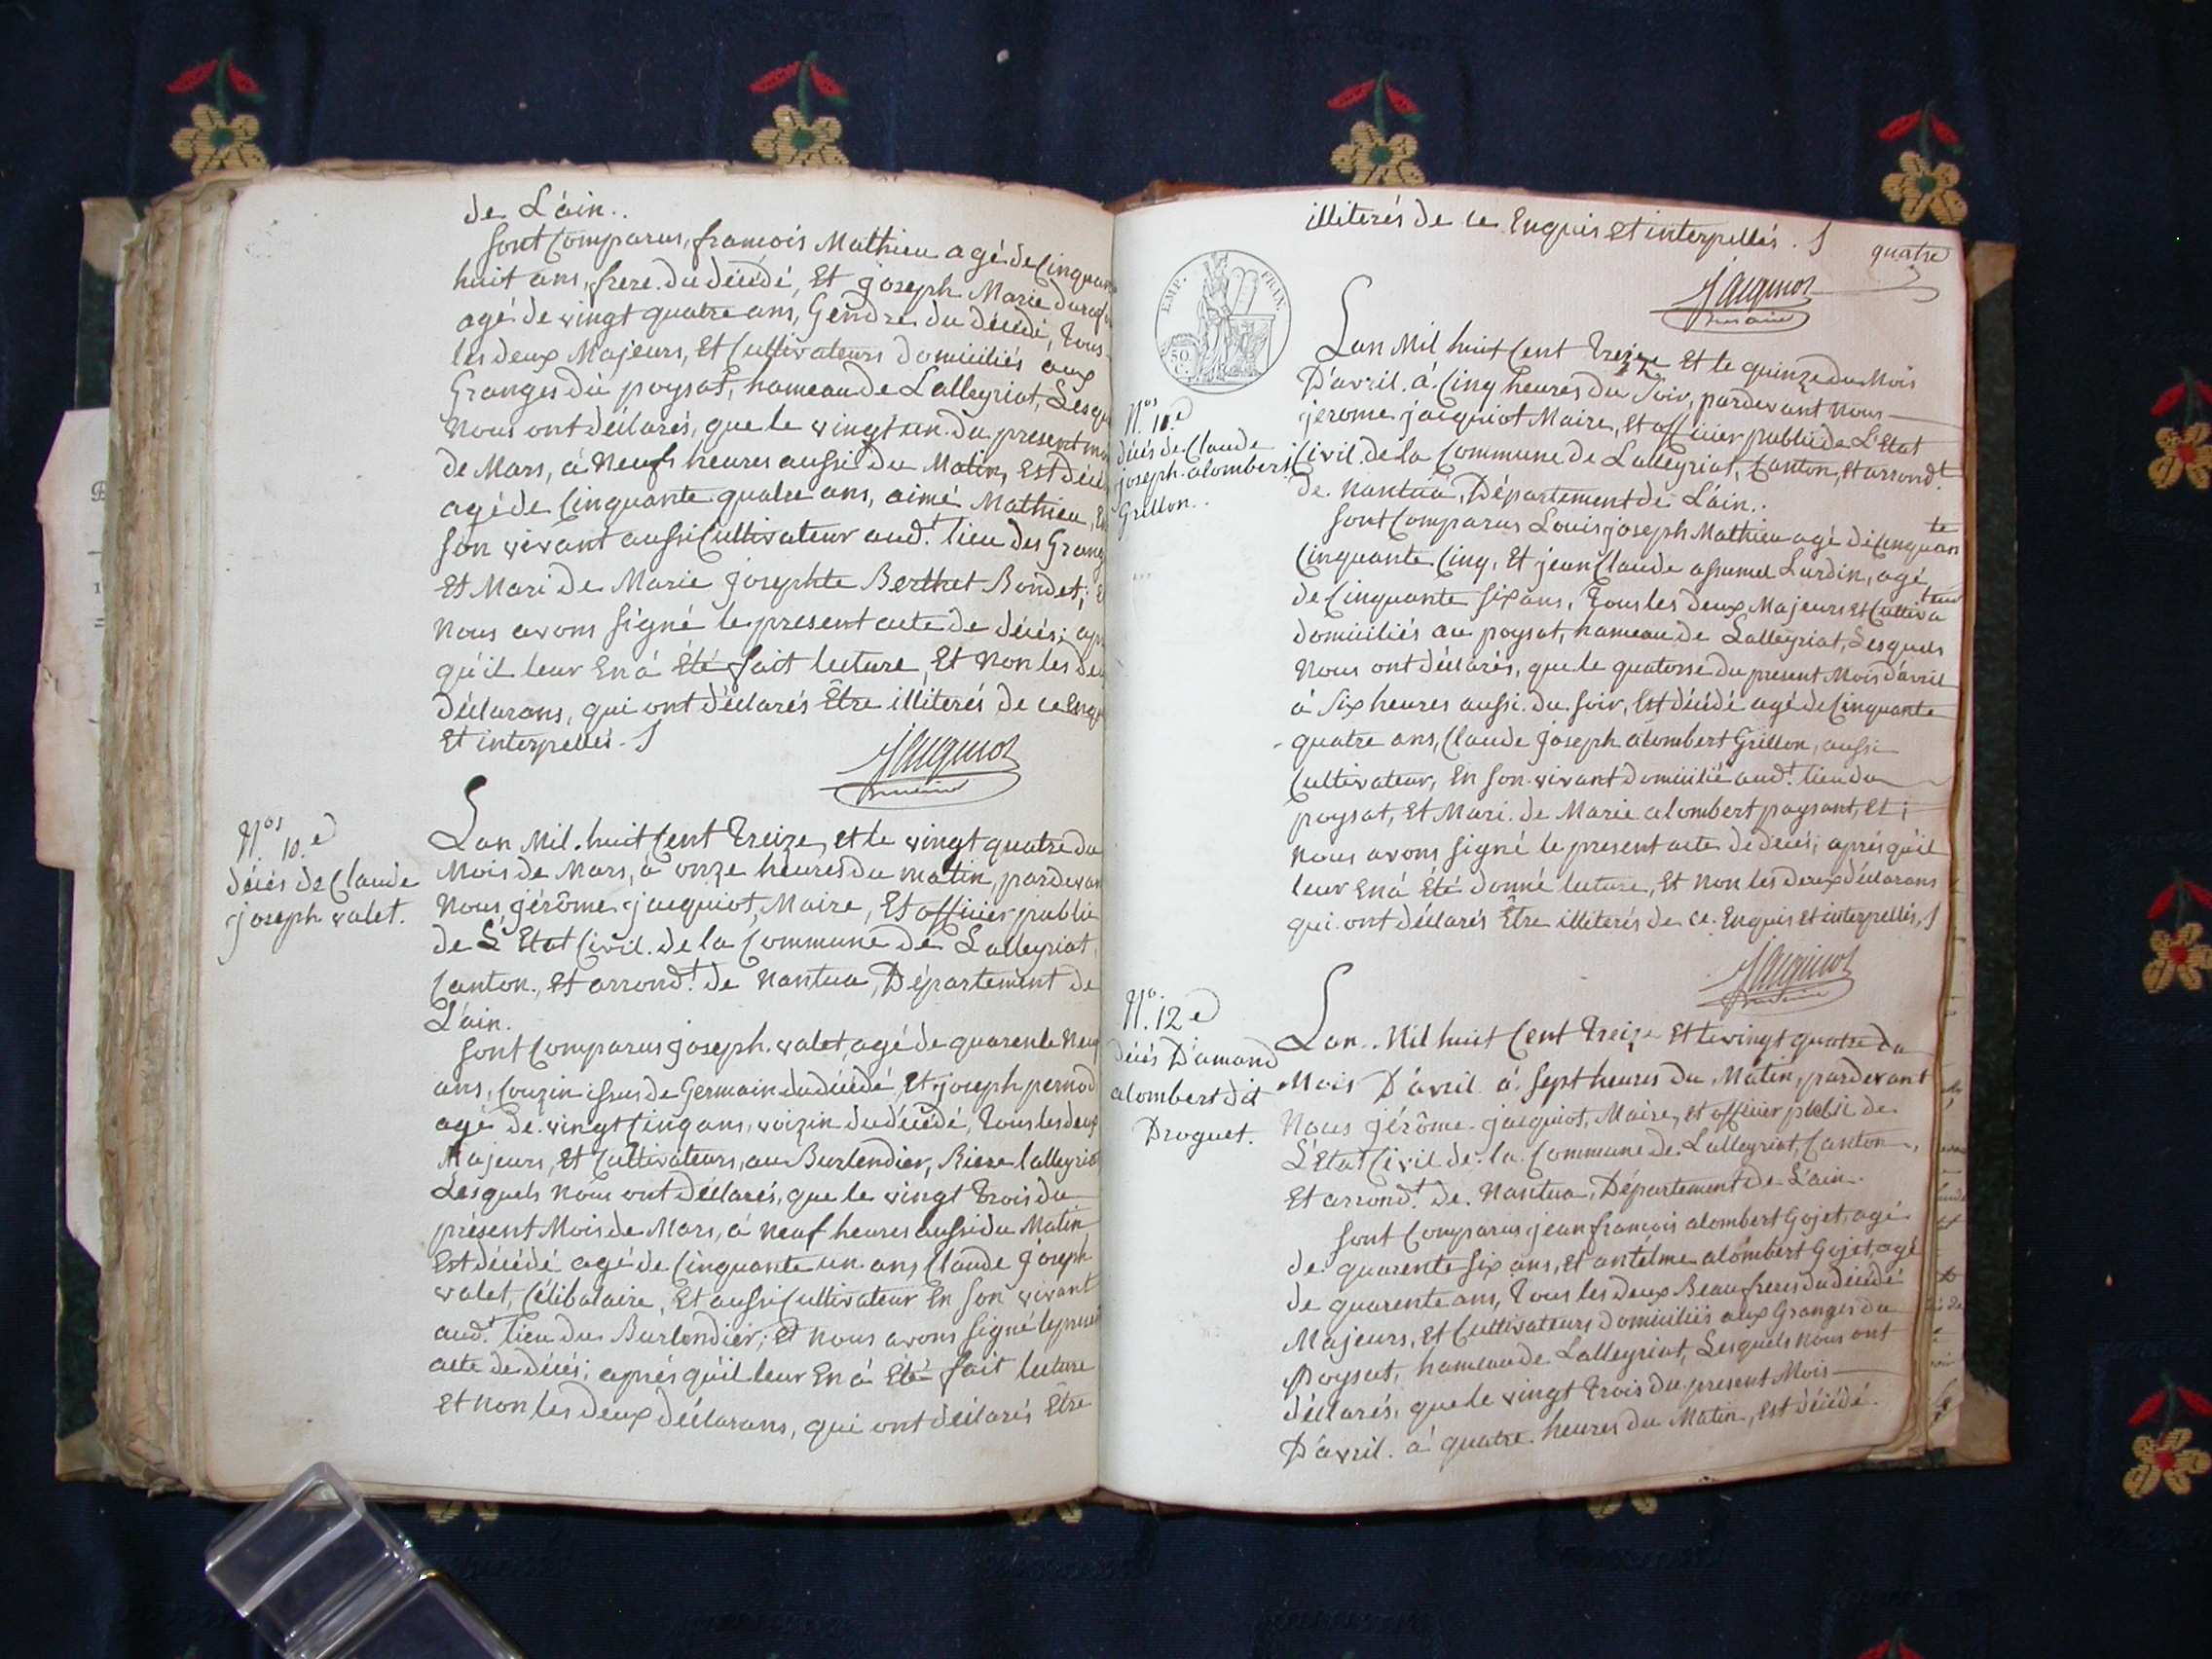 de L'ain..
sont Comparus, francois Mathieu agé de Cinquante
huit ans, frere du décédé, Et joseph Marie
agé de vingt quatre ans, Gendre du décédé, tous
les deux Majeurs, Et Cultivateurs domiciliés aux
Granges du poysat, hameau de Lalleyriat, Lesqu
Nous ont déclarés, que le vingt un du present
de Mars, à Neufs heures aussi du Matin, Est décé
agé de Cinquante quatre ans, aimé Mathieu,
son vivant aussi Cultivateur aud.t lieu des Grang
Et Mari de Marie josephte Berthet Bondet;
Nous avons signé le present acte de décés; apr
qu'il leur En à Eté fait lecture, Et Non les de
déclarans, qui ont déclarés Être illiterés de ce Enq
Et interpellés. /
Jacquiot
maire
N.os 10.e
décés de Claude
joseph valet.
Lan Mil. huit Cent treize, et le vingt quatre du
Mois de Mars, à onze heures du matin, pardevan
Nous, jérôme jacquiot, Maire, Et officier public
de L'Etat Civil. de la Commune de Lalleyriat,
Canton, Et arrond.t de Nantua, Département de
L'ain.
sont Comparus joseph. valet, agé de quarente Neuf
ans, Couzin issus de Germain du décédé, Et joseph pernod
agé de vingt Cinq ans, voizin du décédé, tous les deux
Majeurs, Et Cultivateurs, au Burlendier, Riere lalleyriat
Lesquels Nous ont déclarés, que le vingt trois du
présent Mois de Mars, à Neuf heures aussi du Matin
Est décédé agé de Cinquante un ans, Claude joseph
valet, Célibataire, Et aussi Cultivateur En son vivant
aud.t lieu du Burlendier; Et Nous avons signé le present
acte de décés; aprés qu'il leur En à Eté fait lecture
Et Non les deux déclarans, qui ont déclarés Etre
illiterés de ce Enquis Et interpellés. /
quatre
Jacquiot
maire
EMP. FRAN.
50 C.
N.os 11.e
décés de Claude
joseph alombert
Grillon..
Lan Mil huit Cent treize Et le quinze du Mois
D'avril. à. Cinq heures du Soir, pardevant Nous
jerome jacquiot Maire, Et officier public de L'Etat
Civil. de la Commune de Lalleyriat, Canton, Et arrond.t
de. Nantua, Département de L'ain..
sont Comparus Louis joseph Mathieu agé de Cinquante
Cinquante Cinq, Et jean Claude assumel Lurdin, agé
de Cinquante six ans, tous les deux Majeurs Et Cultivateurs
domiciliés au poysat, hameau de Lalleyriat, Lesquels
Nous ont déclarés, que le quatorse du present Mois d'avril
à Six heures aussi. du soir, Est décédé agé de Cinquante
quatre ans, Claude joseph alombert Grillon, aussi
Cultivateur, En son. vivant domicilié aud.t lieu du
poysat, Et Mari. de Marie alombert paysant, Et;
Nous avons signé le present acte de décés; aprés qu'il
leur En à Eté donné lecture, Et Non les deux déclarans
qui. ont déclarés Être illiterés de ce. Enquis Et interpellés, /
Jacquiot
maire
N.o 12.e
décés D'amand
alombert dit
Droguet.
Lan.. Mil huit Cent treize Et le vingt quatre du
Mois D'avril à. Sept heures du Matin, pardevant
Nous jérôme. jacquiot, Maire, Et officier public de
L'Etat Civil de. la. Commune de. Lalleyriat, Canton,
Et arrond.t de. Nantua, Département de L'ain.
sont Comparus jean francois alombert Gojet, agé
de quarente six ans, Et antélme alombert Gojet, agé
de quarente ans, tous les deux Beaufreres du décédé
Majeurs, Et Cultivateurs domiciliés aux Granges du
Poysat, hameau de Lalleyriat, Lesquels Nous ont
déclarés, que le vingt trois du present Mois
D'avril. à quatre. heures du Matin, est décédé.